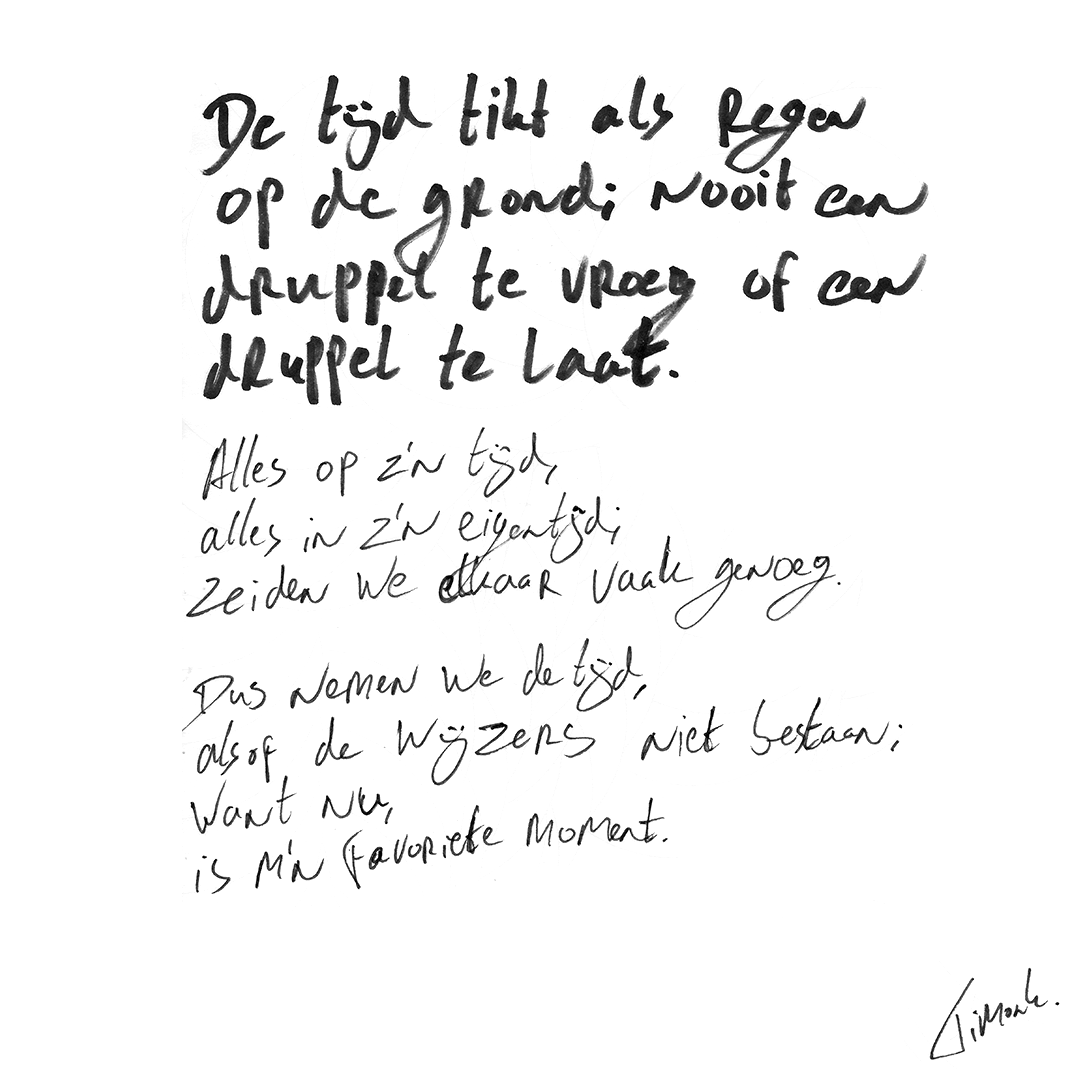 De tijd tikt als regen
op de grond; nooit een
druppel te vroeg of een
druppel te laat.
Alles op z'n tijd,
alles in z'n eigentijd;
zeiden we elkaar vaak genoeg.
Dus nemen we de tijd,
alsof de wijzers niet bestaan;
want nu,
is m'n favoriete moment.
TiMonk.